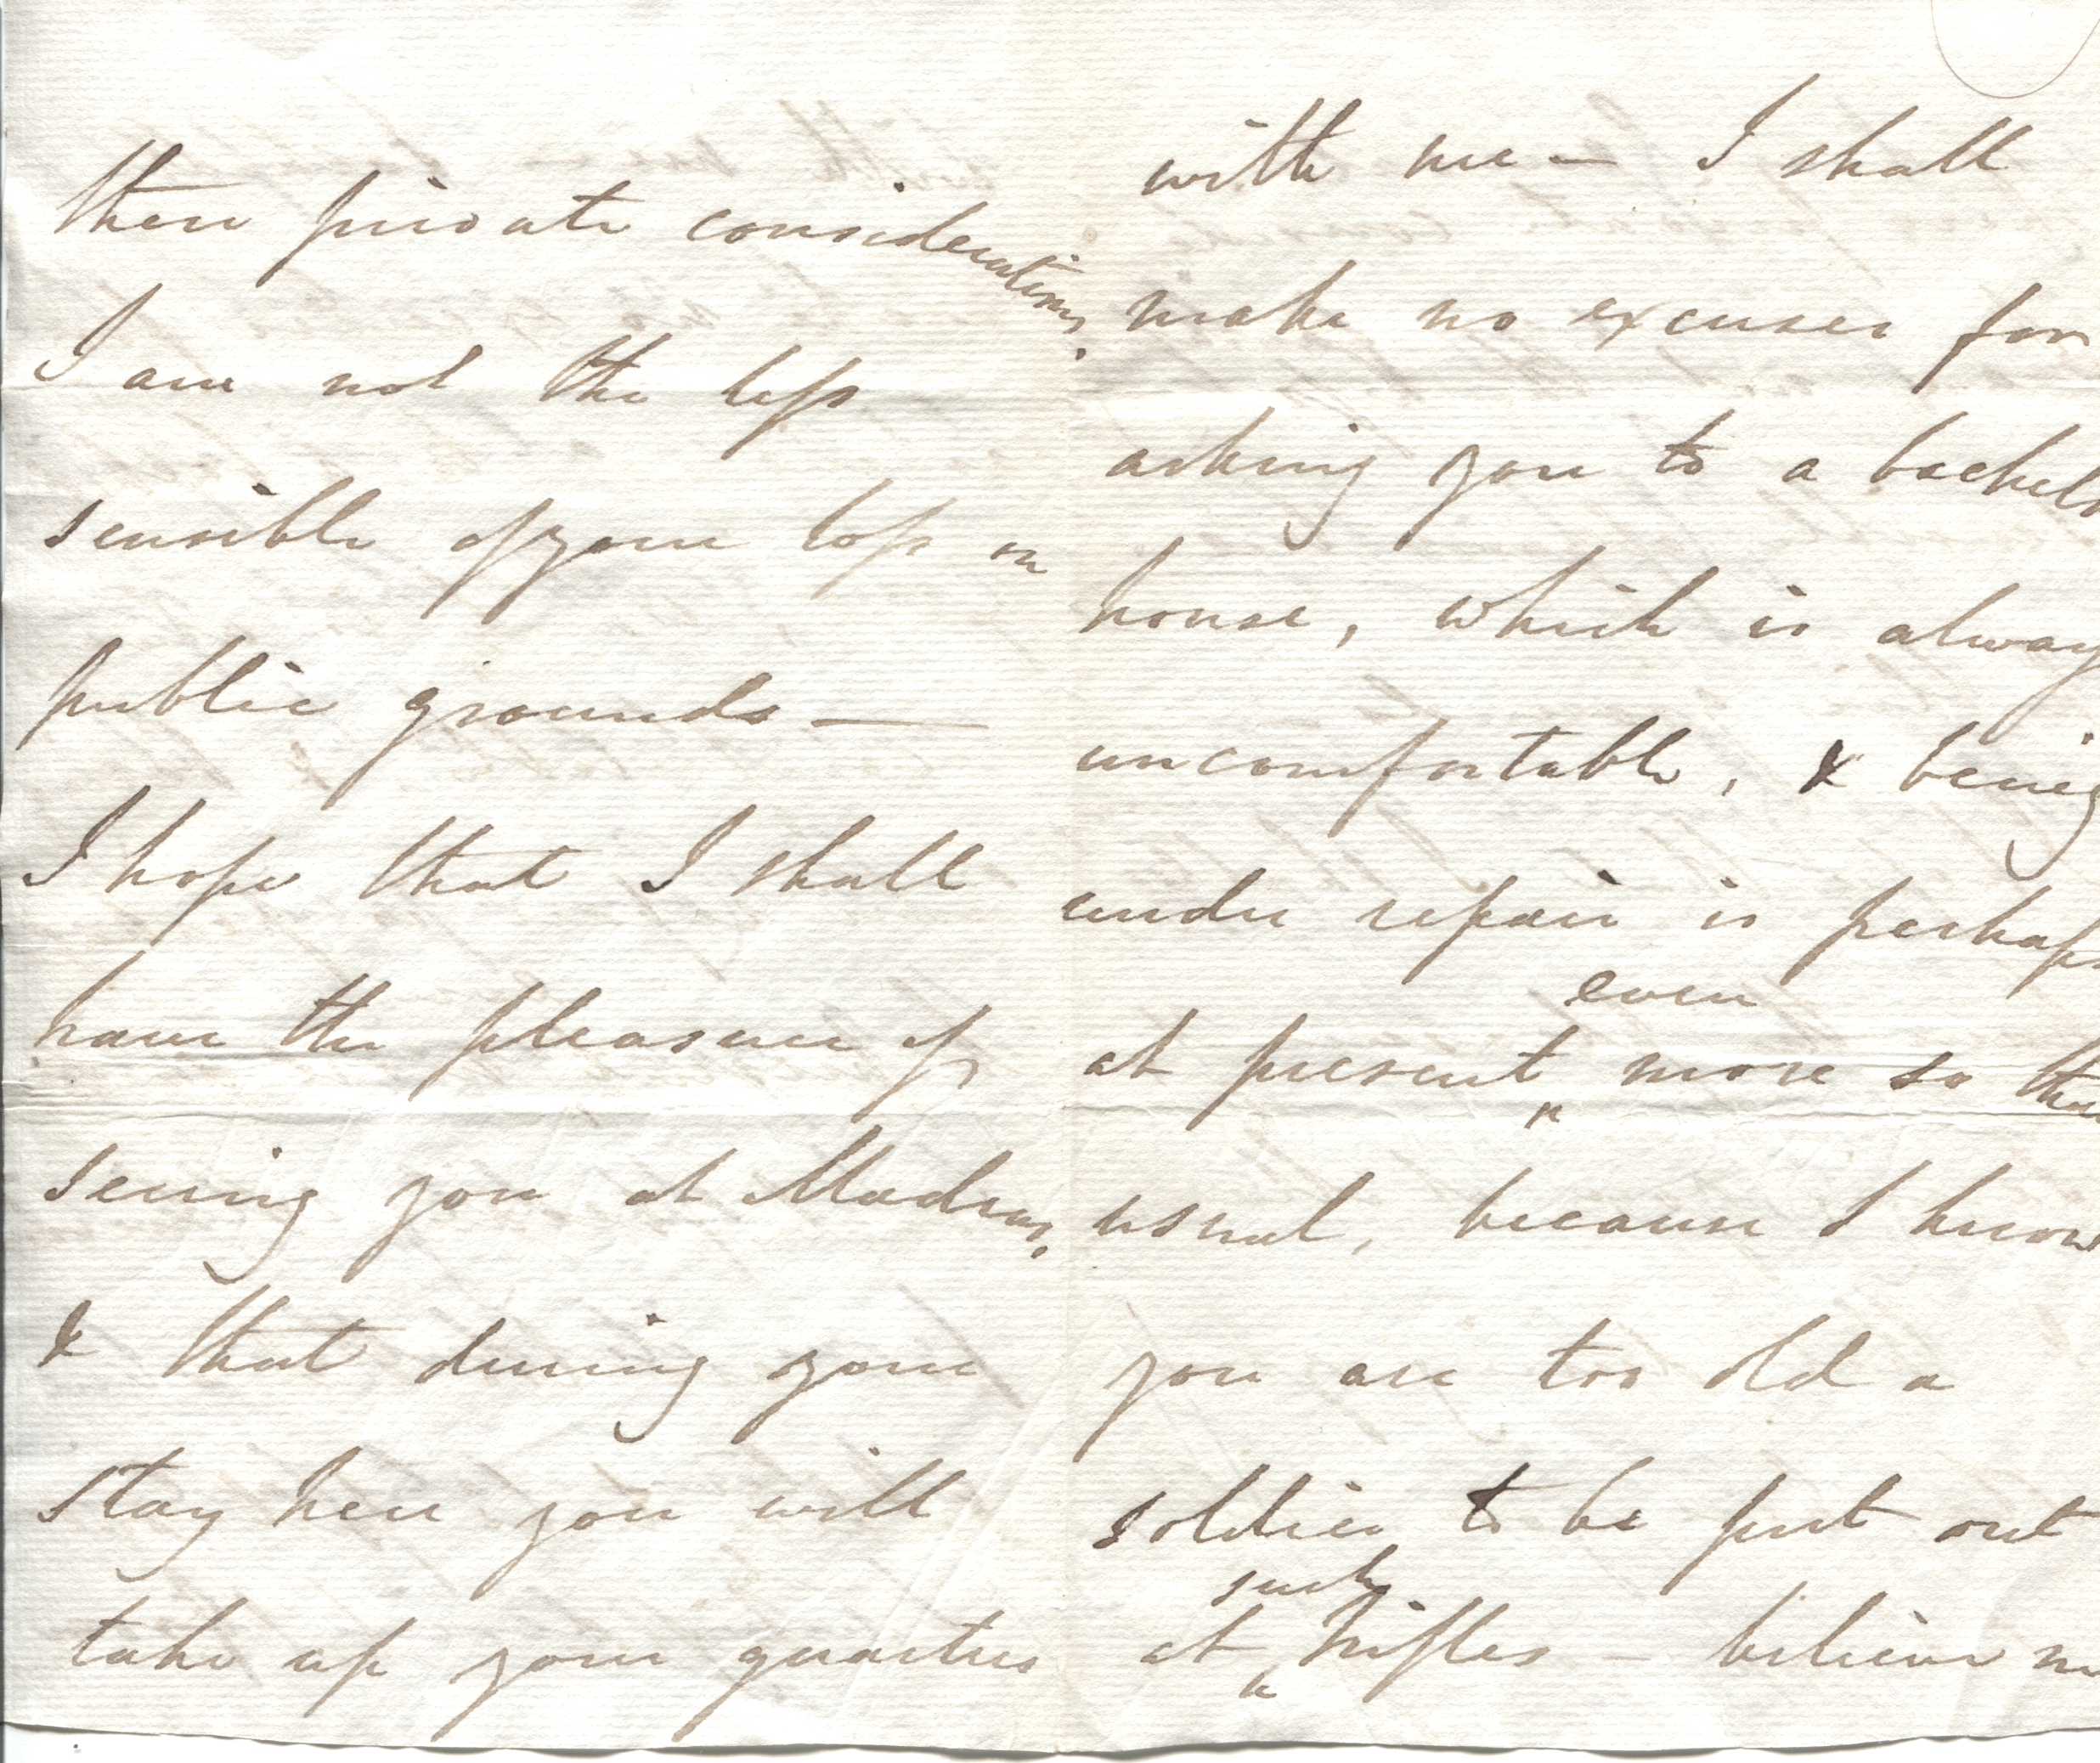 these private considerations,
I am not the less
sensible of your loss on
public grounds —
I hope that I shall
have the pleasure of
seeing you at Madras,
& that during your
stay here you will
take up your quarters
with me — I shall
make no excuses for
asking you to a bachelo
house, which is alway
uncomfortable, & being
under repair is perhaps
even
at present ‸ more so than
usual, because I know
you are too old a
soldier to be put out
such
at ‸ trifles — believe me